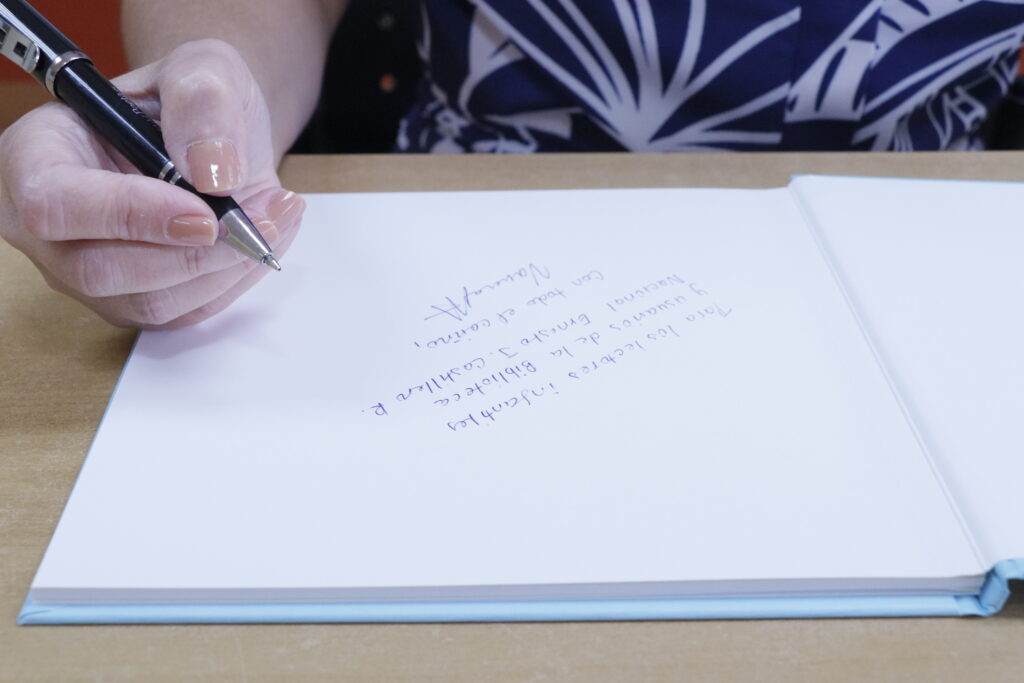 Para los lectores infantiles
y usuarios de la Biblioteca
Nacional Ernesto J. Castillero R.
con todo el cariño,